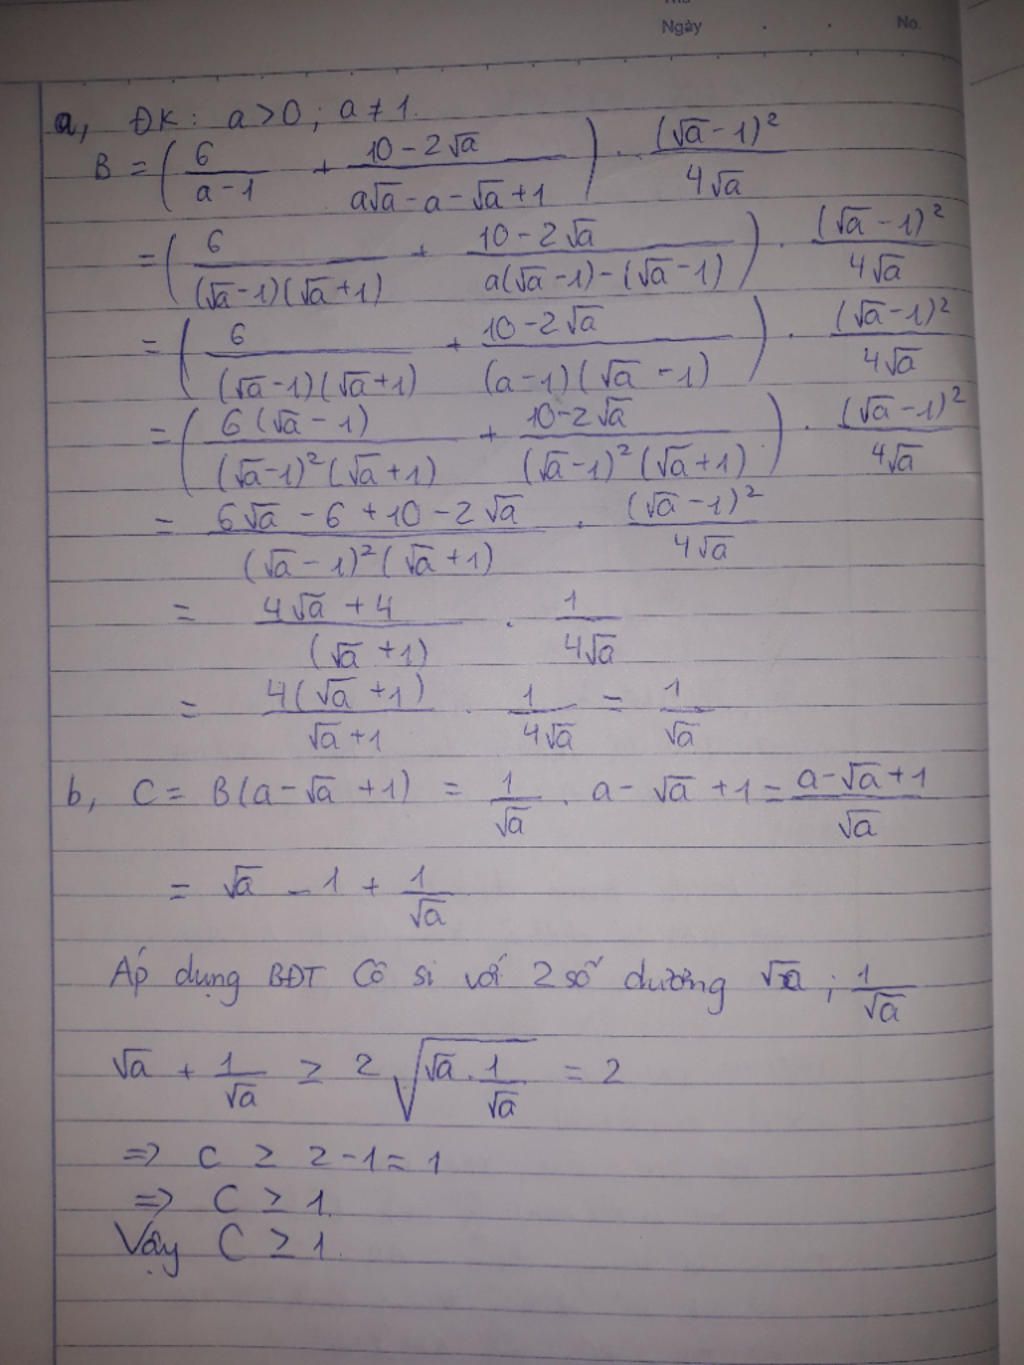 Ngày . . No.
a, ĐK: a > 0; a ≠ 1.
B = ( 6/(a - 1) + (10 - 2√a)/(a√a - a - √a + 1) ) . (√a - 1)²/(4√a)
= ( 6/((√a - 1)(√a + 1)) + (10 - 2√a)/(a(√a - 1) - (√a - 1)) ) . (√a - 1)²/(4√a)
= ( 6/((√a - 1)(√a + 1)) + (10 - 2√a)/((a - 1)(√a - 1)) ) . (√a - 1)²/(4√a)
= ( 6(√a - 1)/((√a - 1)²(√a + 1)) + (10 - 2√a)/((√a - 1)²(√a + 1)) ) . (√a - 1)²/(4√a)
= (6√a - 6 + 10 - 2√a)/((√a - 1)²(√a + 1)) . (√a - 1)²/(4√a)
= (4√a + 4)/(√a + 1) . 1/(4√a)
= 4(√a + 1)/(√a + 1) . 1/(4√a) = 1/√a
b, C = B(a - √a + 1) = 1/√a . a - √a + 1 = (a - √a + 1)/√a
= √a - 1 + 1/√a
Áp dụng BĐT Cô si với 2 số dương √a ; 1/√a
√a + 1/√a ≥ 2√(√a . 1/√a) = 2
=> C ≥ 2 - 1 = 1
=> C ≥ 1.
Vậy C ≥ 1.